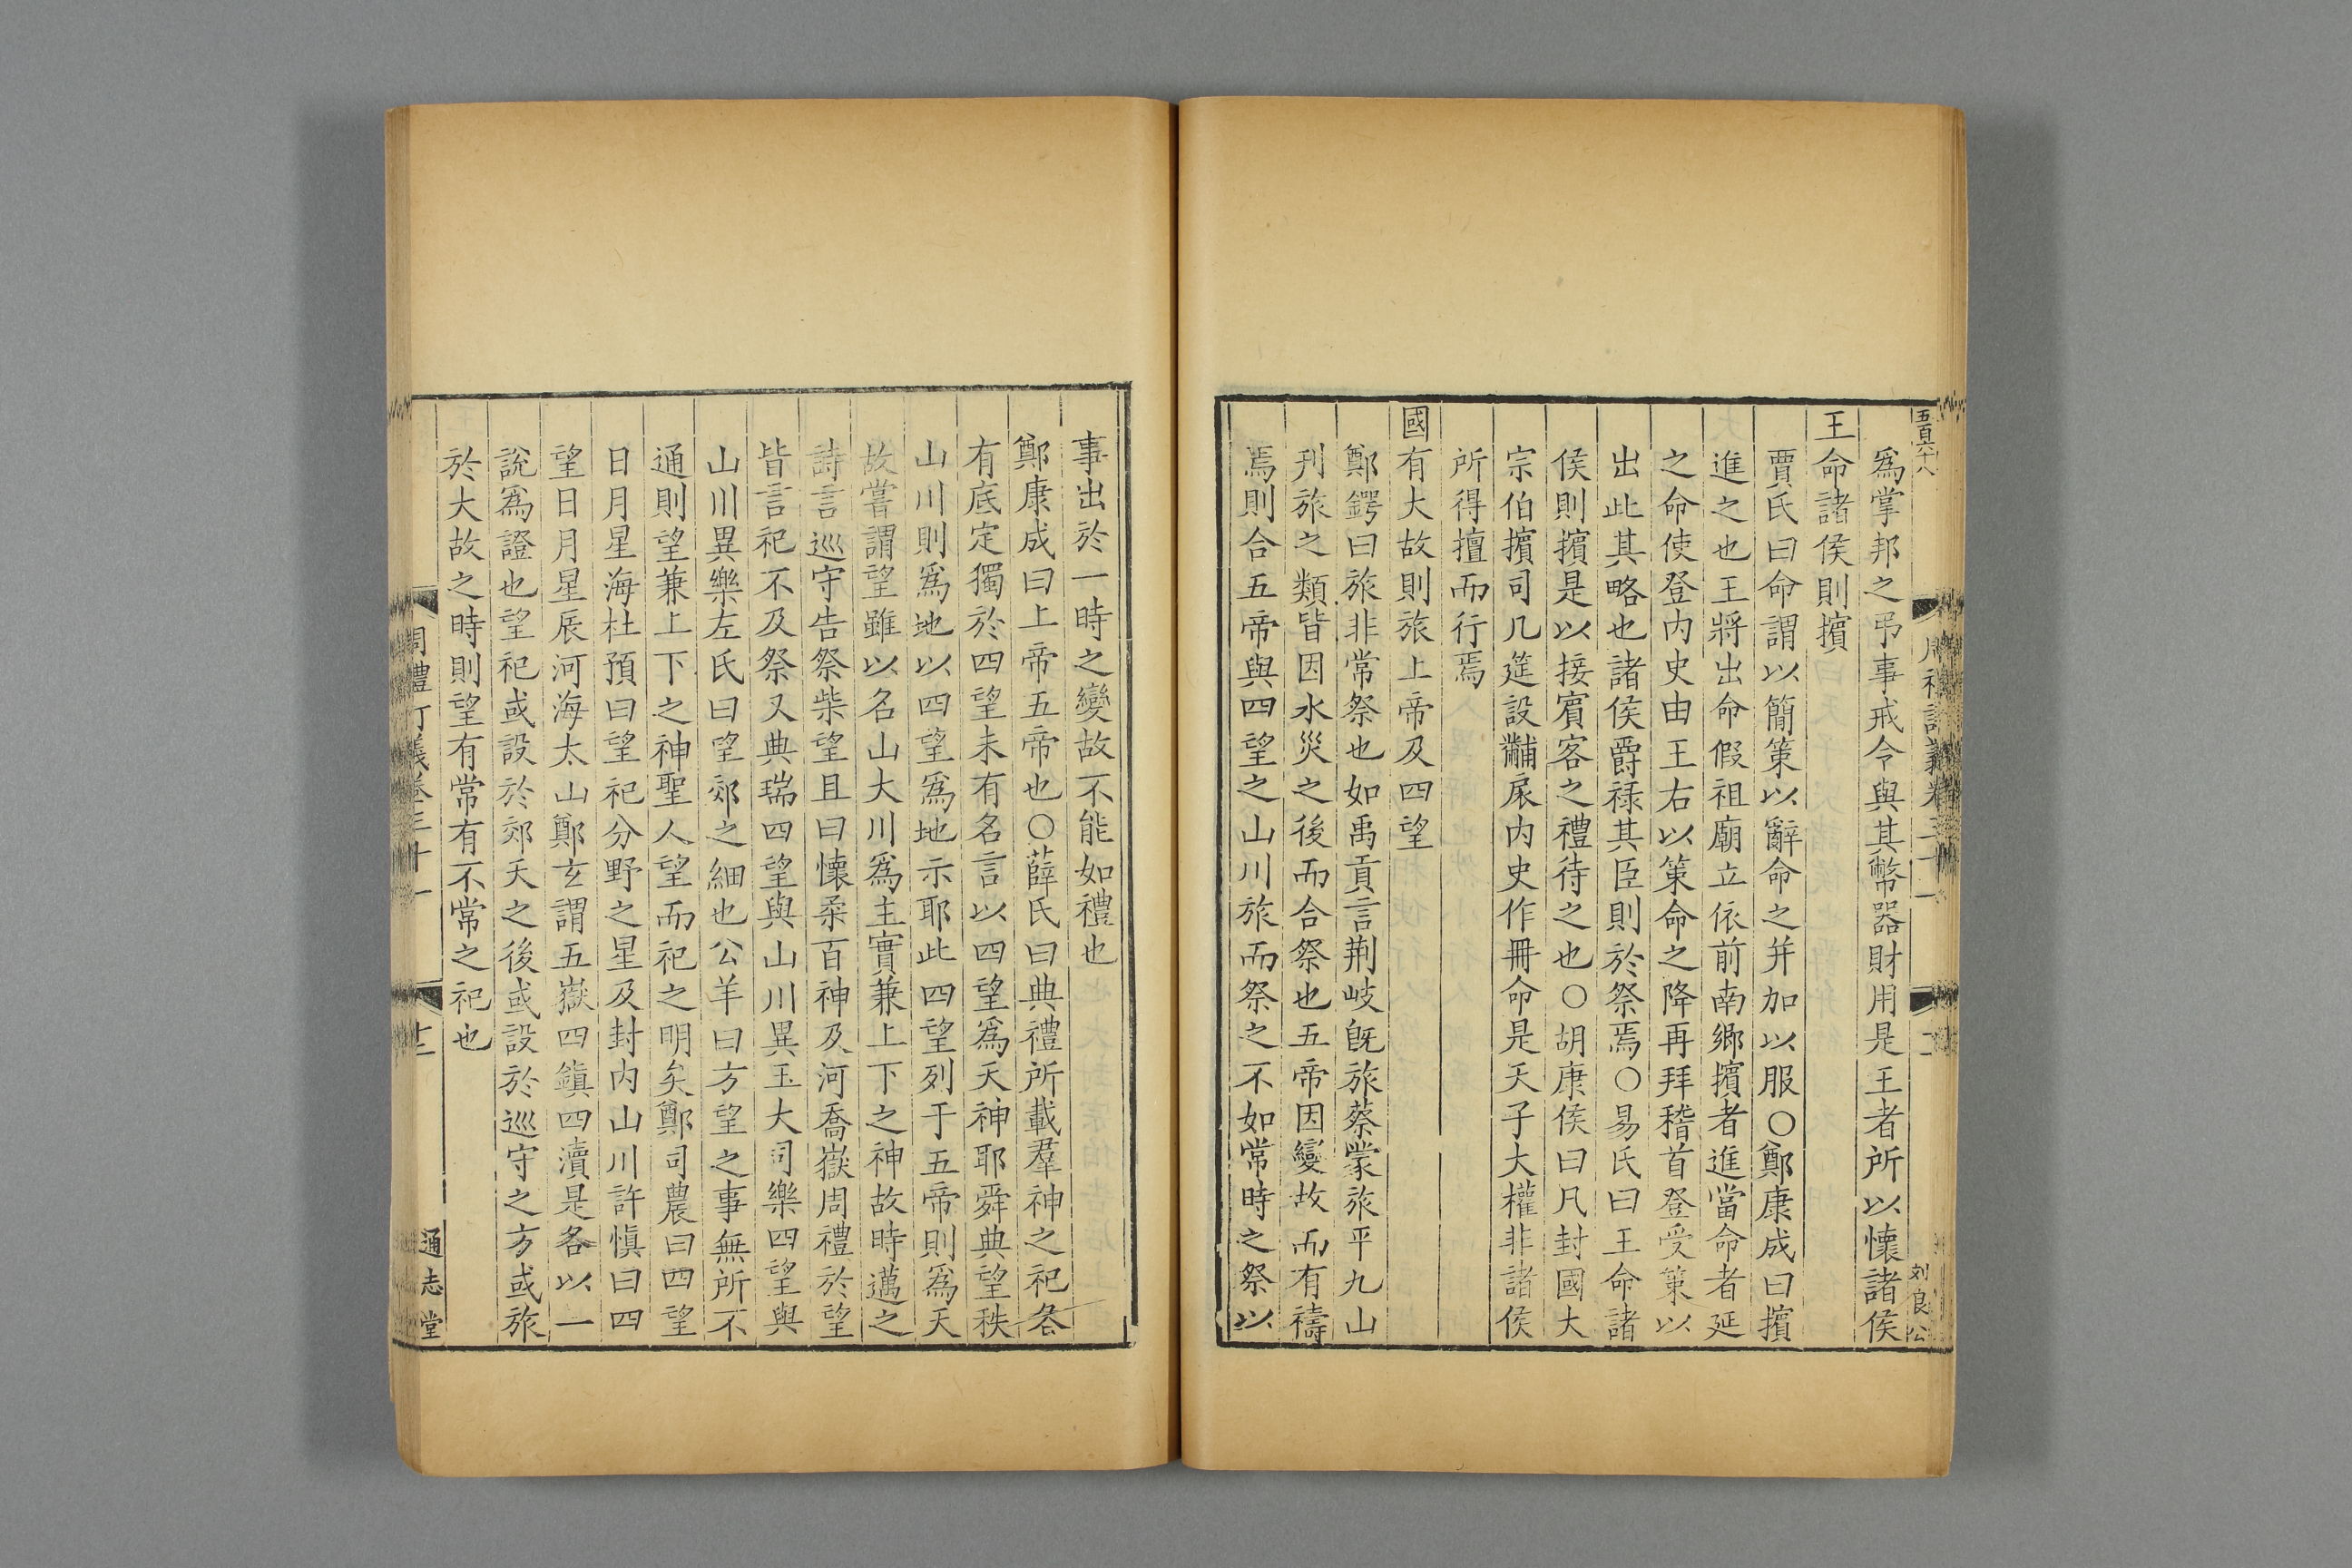 五百六十八
刘良公
爲掌邦之弔事戒令與其幣器財用是王者所以懷諸侯
王命諸侯則擯
賈氏曰命謂以簡策以辭命之并加以服○鄭康成曰擯
進之也王將出命假祖廟立依前南鄉擯者進當命者延
之命使登内史由王右以策命之降再拜稽首登受策以
出此其略也諸侯爵祿其臣則於祭焉○易氏曰王命諸
侯則擯是以接賔客之禮待之也○胡康侯曰凡封國大
宗伯擯司几筵設黼扆内史作冊命是天子大權非諸侯
所得擅而行焉
國有大故則旅上帝及四望
鄭鍔曰旅非常祭也如禹貢言荆岐旣旅蔡蒙旅平九山
刋旅之類皆因水災之後而合祭也五帝因變故而有禱
焉則合五帝與四望之山川旅而祭之不如常時之祭以
事出於一時之變故不能如禮也
鄭康成曰上帝五帝也○薛氏曰典禮所載羣神之祀各
有底定獨於四望未有名言以四望爲天神耶舜典望秩
山川則爲地以四望爲地示耶此四望列于五帝則爲天
故嘗謂望雖以名山大川爲主實兼上下之神故時邁之
詩言巡守告祭柴望且曰懷柔百神及河喬嶽周禮於望
皆言祀不及祭又典瑞四望與山川異玉大司樂四望與
山川異樂左氏曰望郊之細也公羊曰方望之事無所不
通則望兼上下之神聖人望而祀之明矣鄭司農曰四望
日月星海杜預曰望祀分野之星及封内山川許愼曰四
望日月星辰河海太山鄭玄謂五嶽四鎭四瀆是各以一
說爲證也望祀或設於郊天之後或設於巡守之方或旅
於大故之時則望有常有不常之祀也
周禮訂義卷三十一
十二
通志堂